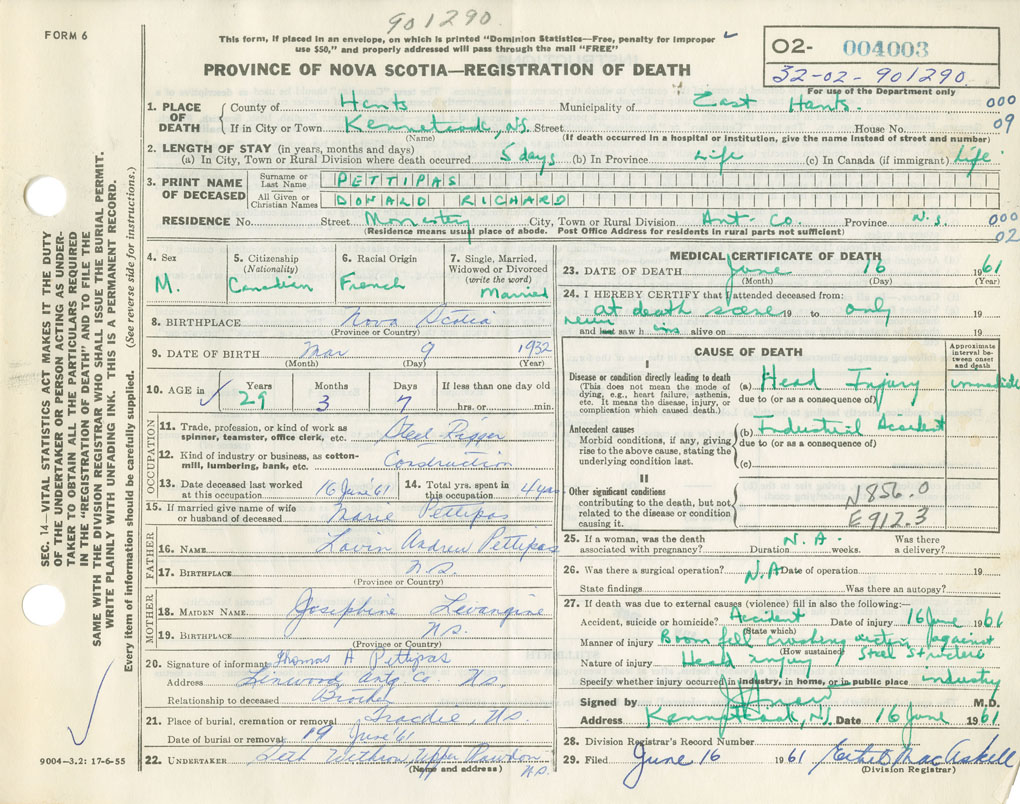 901290
FORM 6
This form, if placed in an envelope, on which is printed "Dominion Statistics—Free, penalty for improper
use $50," and properly addressed will pass through the mail "FREE"
PROVINCE OF NOVA SCOTIA—REGISTRATION OF DEATH
02- 004003
32-02-901290
For use of the Department only
1. PLACE OF DEATH County of Hants Municipality of East Hants. 000
If in City or Town Kennetcook, N.S. Street House No. 09
(Name) (If death occurred in a hospital or institution, give the name instead of street and number)
2. LENGTH OF STAY (in years, months and days)
(a) In City, Town or Rural Division where death occurred 5 days (b) In Province Life (c) In Canada (if immigrant) Life
3. PRINT NAME OF DECEASED Surname or Last Name PETTIPAS
All Given or Christian Names DONALD RICHARD
RESIDENCE No. Street City, Town or Rural Division Ant. Co. Province N.S. 000
(Residence means usual place of abode. Post Office Address for residents in rural parts not sufficient) 02
4. Sex M.
5. Citizenship (Nationality) Canadian
6. Racial Origin French
7. Single, Married, Widowed or Divorced (write the word) Married
8. BIRTHPLACE Nova Scotia
(Province or Country)
9. DATE OF BIRTH Mar 9 1932
(Month) (Day) (Year)
10. AGE in Years Months Days If less than one day old
29 3 7 hrs. or min.
OCCUPATION
11. Trade, profession, or kind of work as spinner, teamster, office clerk, etc. Steel Rigger
12. Kind of industry or business, as cotton-mill, lumbering, bank, etc. Construction
13. Date deceased last worked at this occupation 16 June '61
14. Total yrs. spent in this occupation 4 yrs
15. If married give name of wife or husband of deceased Marie Pettipas
FATHER
16. NAME Andrew Pettipas
17. BIRTHPLACE N.S.
(Province or Country)
MOTHER
18. MAIDEN NAME Josephine Levangine
19. BIRTHPLACE N.S.
(Province or Country)
20. Signature of informant Thomas A Pettipas
Address Linwood Antg Co. N.S.
Relationship to deceased Brother
21. Place of burial, cremation or removal Tracdie, N.S.
Date of burial or removal 19 June '61
22. UNDERTAKER Upper Rawdon N.S.
(Name and address)
9004—3.2: 17-6-55
MEDICAL CERTIFICATE OF DEATH
23. DATE OF DEATH June 16 1961
(Month) (Day) (Year)
24. I HEREBY CERTIFY that I attended deceased from:
at death scene 19 to only 19
never
and last saw h im alive on 19
CAUSE OF DEATH
Approximate interval between onset and death
I
Disease or condition directly leading to death
(This does not mean the mode of dying, e.g., heart failure, asthenia, etc. It means the disease, injury, or complication which caused death.)
(a) Head Injury immediate
due to (or as a consequence of)
Antecedent causes
Morbid conditions, if any, giving rise to the above cause, stating the underlying condition last.
(b) Industrial Accident
due to (or as a consequence of)
(c)
II
Other significant conditions
contributing to the death, but not related to the disease or condition causing it.
N856.0
E912.3
25. If a woman, was the death associated with pregnancy? N.A. Duration weeks. Was there a delivery?
26. Was there a surgical operation? N.A Date of operation 19
State findings Was there an autopsy?
27. If death was due to external causes (violence) fill in also the following:—
Accident, suicide or homicide? Accident Date of injury 16 June 1961
(State which)
Manner of injury Boom fell crushing victim against
(How sustained) Steel Structure
Nature of injury Head injury
Specify whether injury occurred in industry, in home, or in public place industry
Signed by M.D.
Address Kennetcook, N.S. Date 16 June 1961
28. Division Registrar's Record Number
29. Filed June 16 1961 Ethel MacAskell
(Division Registrar)
SEC. 14—VITAL STATISTICS ACT MAKES IT THE DUTY
OF THE UNDERTAKER OR PERSON ACTING AS UNDER-
TAKER TO OBTAIN ALL THE PARTICULARS REQUIRED
IN THE "REGISTRATION OF DEATH" AND TO FILE THE
SAME WITH THE DIVISION REGISTRAR WHO SHALL ISSUE THE BURIAL PERMIT.
WRITE PLAINLY WITH UNFADING INK. THIS IS A PERMANENT RECORD.
Every item of information should be carefully supplied. (See reverse side for instructions.)